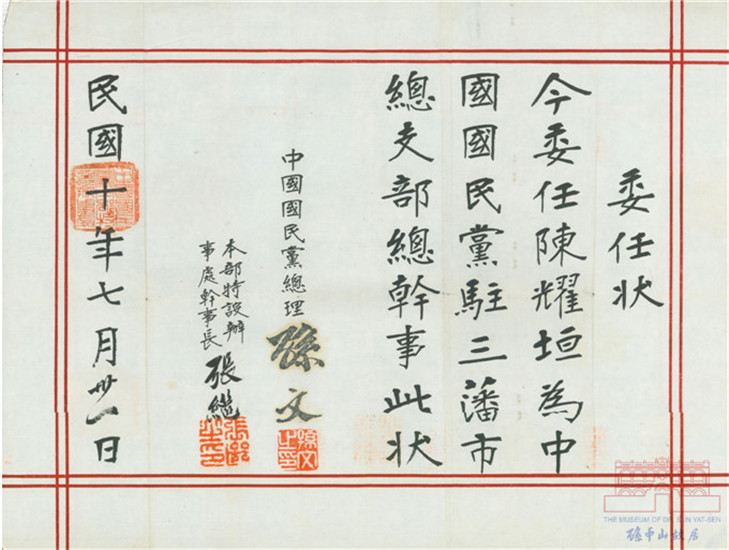 委任狀
今委任陳耀垣為中
國國民黨駐三藩市
總支部總幹事此狀
中國國民黨總理 孫文
孫文之印
本部特設辦
事處幹事長 張繼
張繼之印
民國十年七月卅一日
THE MUSEUM OF DR. SUN YAT-SEN
孫中山故居